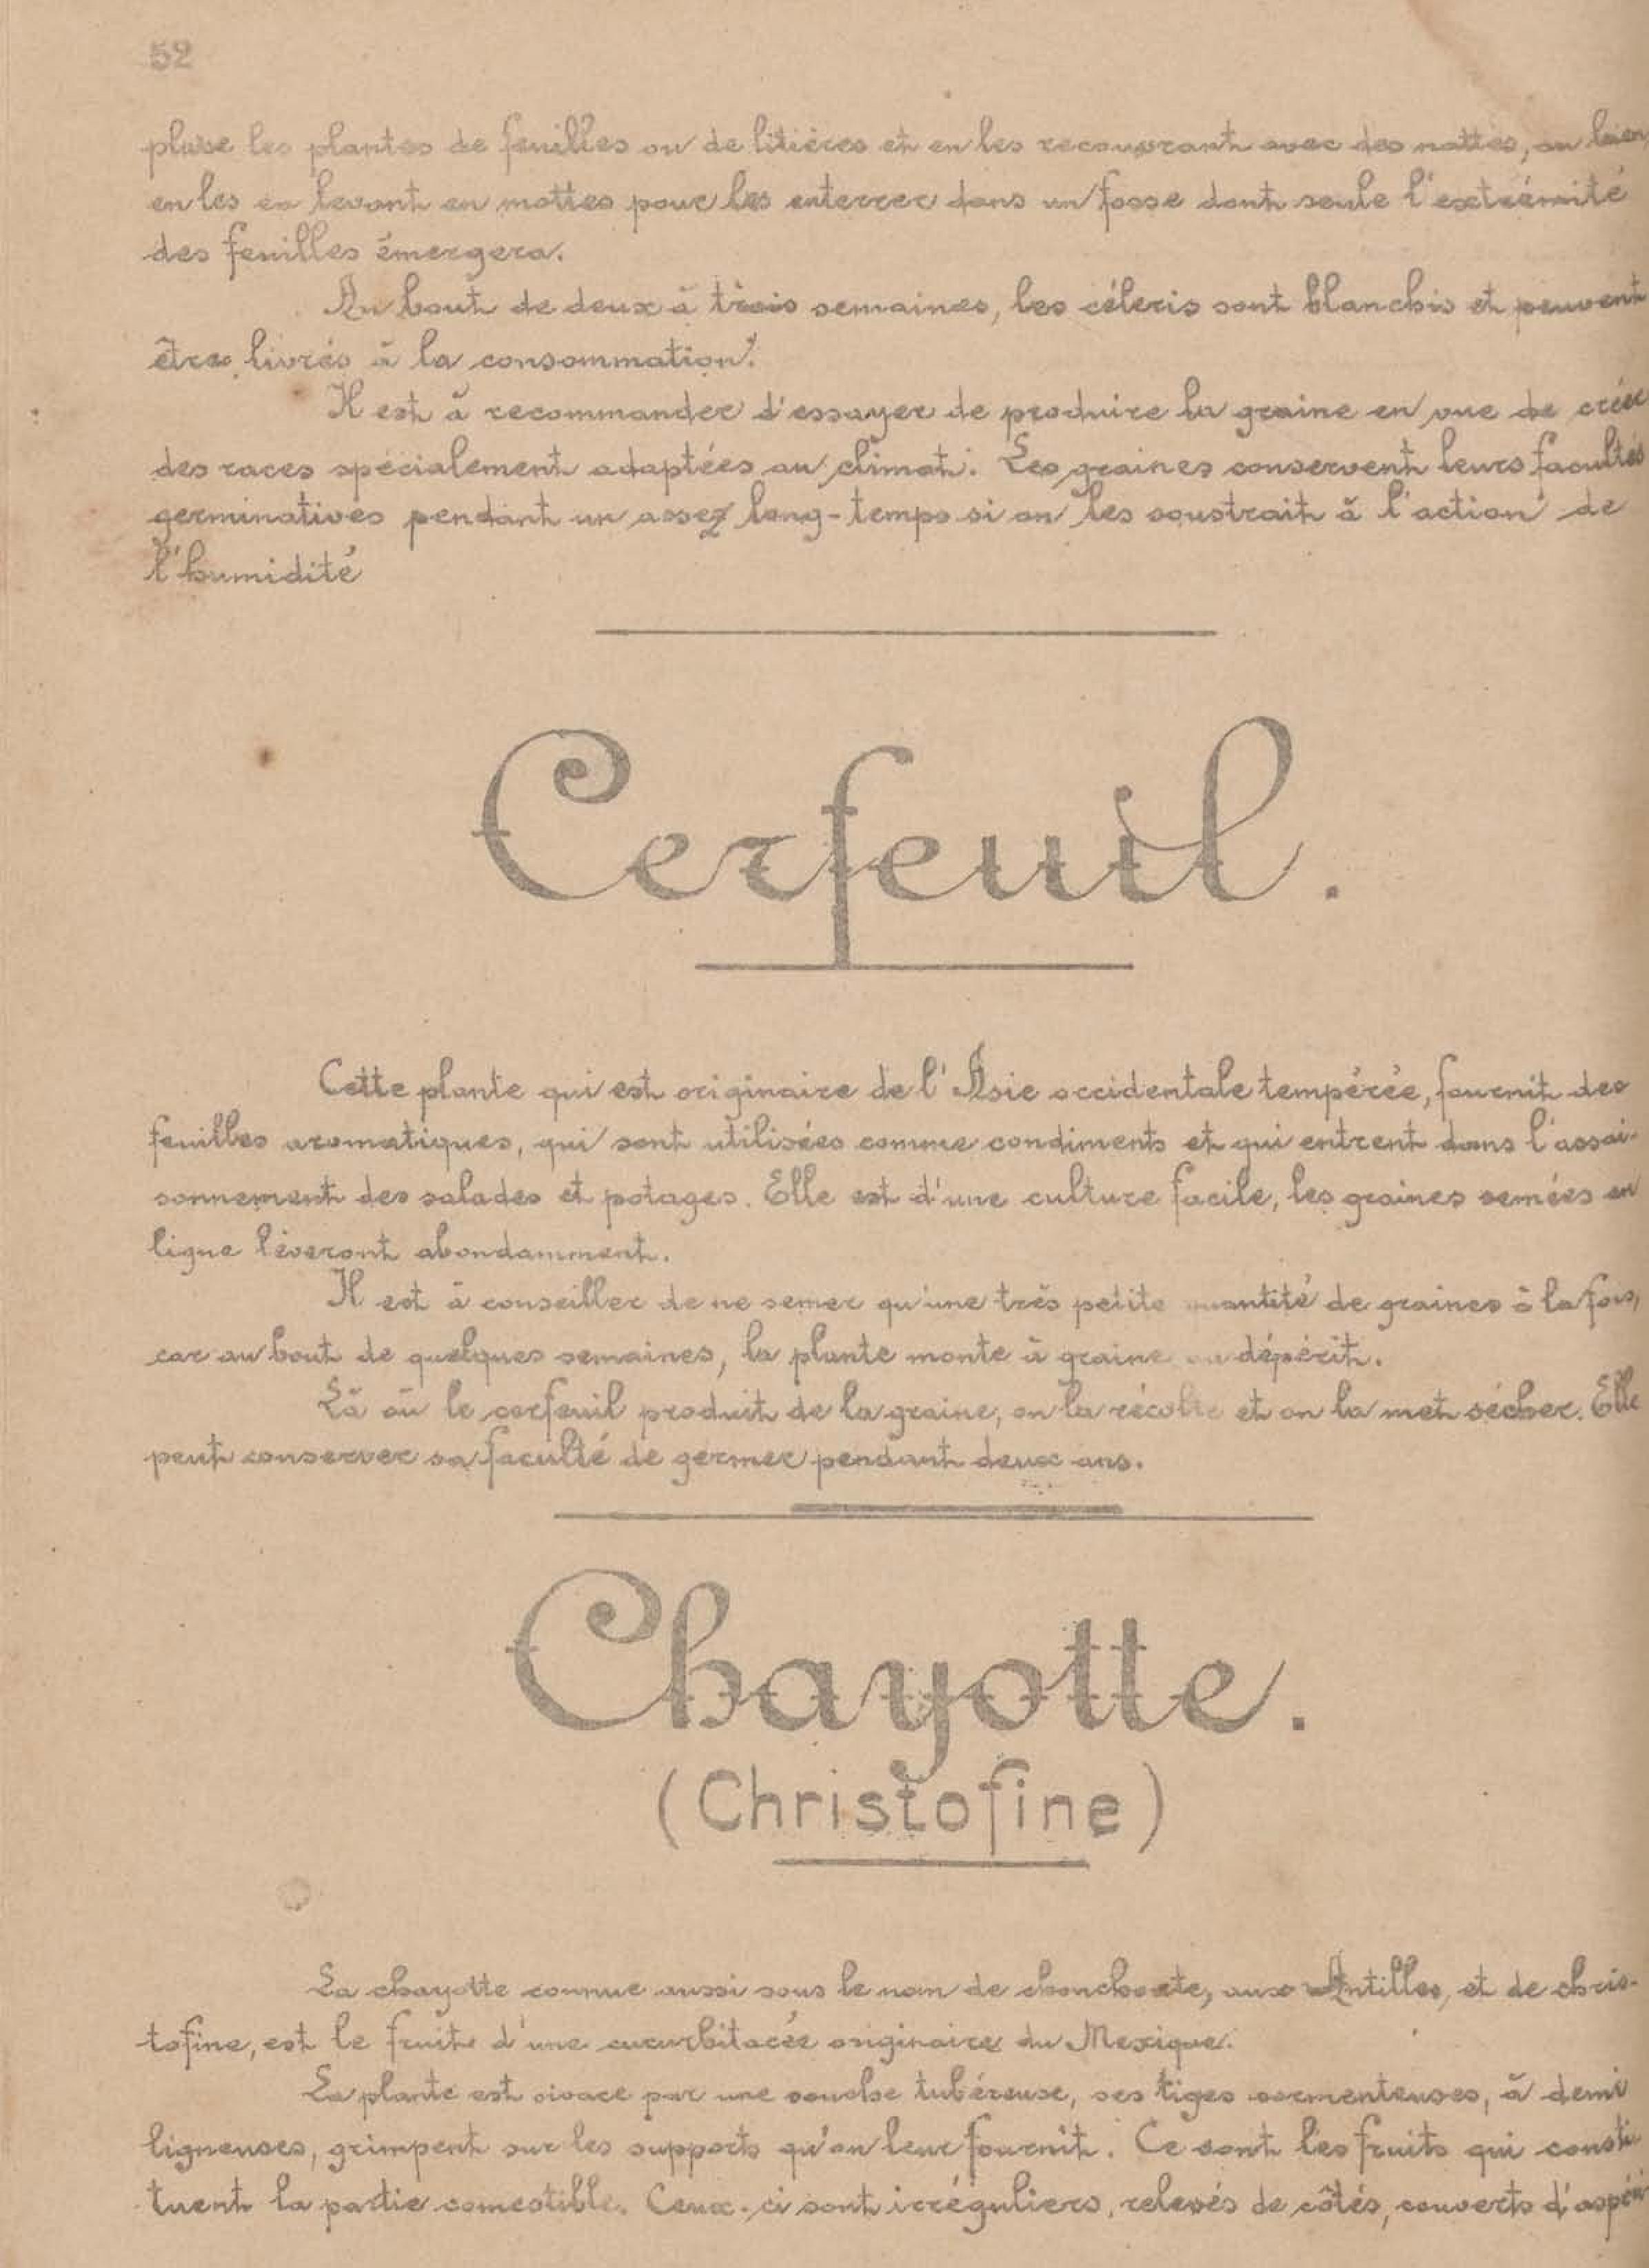 52
place les plantes de feuilles ou de litières et en les recouvrant avec des nattes, ou bien,
en les en levant en mottes pour les enterrer dans un fosse dont seule l'extrémité
des feuilles émergera.
Au bout de deux à trois semaines, les céleris sont blanchis et peuvent
être livrés à la consommation.
Il est à recommander d'essayer de produire la graine en vue de créer
des races spécialement adaptées au climat. Les graines conservent leurs facultés
germinatives pendant un assez long-temps si on les soustrait à l'action de
l'humidité
Cerfeuil.
Cette plante qui est originaire de l'Asie occidentale tempérée, fournit des
feuilles aromatiques, qui sont utilisées comme condiments et qui entrent dans l'assai-
sonnement des salades et potages. Elle est d'une culture facile, les graines semées en
ligne lèveront abondamment.
Il est à conseiller de ne semer qu'une très petite quantité de graines à la fois,
car au bout de quelques semaines, la plante monte à graine ou dépérit.
Là où le cerfeuil produit de la graine, on la récolte et on la met sécher. Elle
peut conserver sa faculté de germer pendant deux ans.
Chayotte.
(Christofine)
La chayotte connue aussi sous le nom de chonchoute, aux Antilles, et de chris-
tofine, est le fruit d'une cucurbitacée originaire du Mexique.
La plante est vivace par une souche tubéreuse, ses tiges sarmenteuses, à demi
ligneuses, grimpent sur les supports qu'on leur fournit. Ce sont les fruits qui consti
tuent la partie comestible. Ceux-ci sont irréguliers, relevés de côtés, couverts d'aspéri